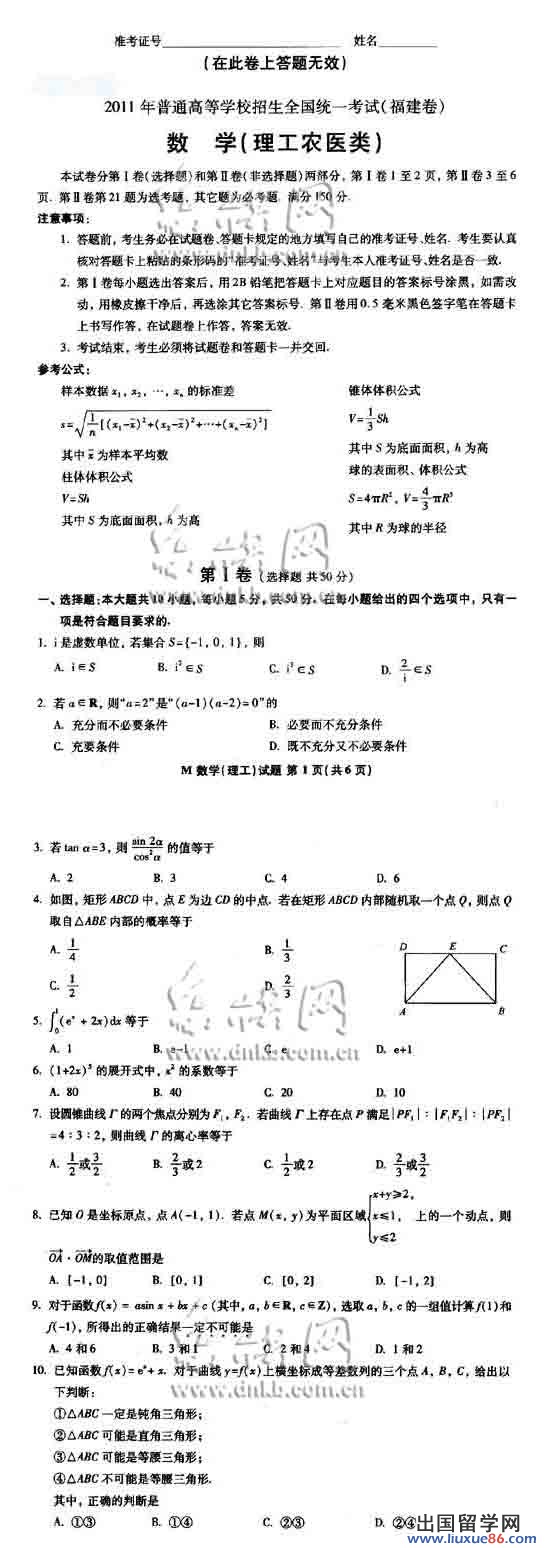 准考证号 姓名
(在此卷上答题无效)
2011 年普通高等学校招生全国统一考试(福建卷)
数 学(理工农医类)
本试卷分第Ⅰ卷(选择题)和第Ⅱ卷(非选择题)两部分, 第Ⅰ卷 1 至 2 页, 第Ⅱ卷 3 至 6
页. 第Ⅱ卷第 21 题为选考题, 其它题为必考题. 满分 150 分.
注意事项:
1. 答题前, 考生务必在试题卷、答题卡规定的地方填写自己的准考证号、姓名. 考生要认真
核对答题卡上粘贴的条形码的“准考证号、姓名”与考生本人准考证号、姓名是否一致.
2. 第Ⅰ卷每小题选出答案后, 用 2B 铅笔把答题卡上对应题目的答案标号涂黑, 如需改
动, 用橡皮擦干净后, 再选涂其它答案标号. 第Ⅱ卷用 0.5 毫米黑色签字笔在答题卡
上书写作答, 在试题卷上作答, 答案无效.
3. 考试结束, 考生必须将试题卷和答题卡一并交回.
参考公式:
样本数据 x₁, x₂, …, xₙ 的标准差 锥体体积公式
s=√(1/n[(x₁-x̄)²+(x₂-x̄)²+⋯+(xₙ-x̄)²]) V=1/3 Sh
其中 x̄ 为样本平均数 其中 S 为底面面积, h 为高
柱体体积公式 球的表面积、体积公式
V=Sh S=4πR², V=4/3 πR³
其中 S 为底面面积, h 为高 其中 R 为球的半径
第Ⅰ卷(选择题 共 50 分)
一、选择题:本大题共 10 小题, 每小题 5 分, 共 50 分. 在每小题给出的四个选项中, 只有一
项是符合题目要求的.
1. i 是虚数单位, 若集合 S={-1, 0, 1}, 则
A. i∈S B. i²∈S C. i³∈S D. 2/i∈S
2. 若 a∈R, 则“a=2”是“(a-1)(a-2)=0”的
A. 充分而不必要条件 B. 必要而不充分条件
C. 充要条件 D. 既不充分又不必要条件
M 数学(理工)试题 第 1 页(共 6 页)
3. 若 tan α=3, 则 sin 2α/cos²α 的值等于
A. 2 B. 3 C. 4 D. 6
4. 如图, 矩形 ABCD 中, 点 E 为边 CD 的中点. 若在矩形 ABCD 内部随机取一个点 Q, 则点 Q
取自△ABE 内部的概率等于
A. 1/4 B. 1/3
C. 1/2 D. 2/3
D E C
A B
5. ∫₀¹(eˣ + 2x)dx 等于
A. 1 B. e-1 C. e D. e+1
6. (1+2x)⁵ 的展开式中, x² 的系数等于
A. 80 B. 40 C. 20 D. 10
7. 设圆锥曲线 Γ 的两个焦点分别为 F₁, F₂. 若曲线 Γ 上存在点 P 满足|PF₁|:|F₁F₂|:|PF₂|
=4:3:2, 则曲线 Γ 的离心率等于
A. 1/2或3/2 B. 2/3或2 C. 1/2或2 D. 2/3或3/2
8. 已知 O 是坐标原点, 点 A(-1, 1). 若点 M(x, y)为平面区域{x+y≥2, x≤1, y≤2 上的一个动点, 则
OA·OM的取值范围是
A. [-1, 0] B. [0, 1] C. [0, 2] D. [-1, 2]
9. 对于函数 f(x) = asin x + bx + c (其中, a, b∈R, c∈Z), 选取 a, b, c 的一组值计算 f(1)和
f(-1), 所得出的正确结果一定不可能是
A. 4 和 6 B. 3 和 1 C. 2 和 4 D. 1 和 2
10. 已知函数 f(x)=eˣ+x. 对于曲线 y=f(x)上横坐标成等差数列的三个点 A, B, C, 给出以
下判断:
①△ABC 一定是钝角三角形;
②△ABC 可能是直角三角形;
③△ABC 可能是等腰三角形;
④△ABC 不可能是等腰三角形.
其中, 正确的判断是
A. ①③ B. ①④ C. ②③ D. ②④
www.dnkb.com.cn
www.dnkb.com.cn
www.dnkb.com.cn
www.dnkb.com.cn
出国留学网
www.liuxue86.com